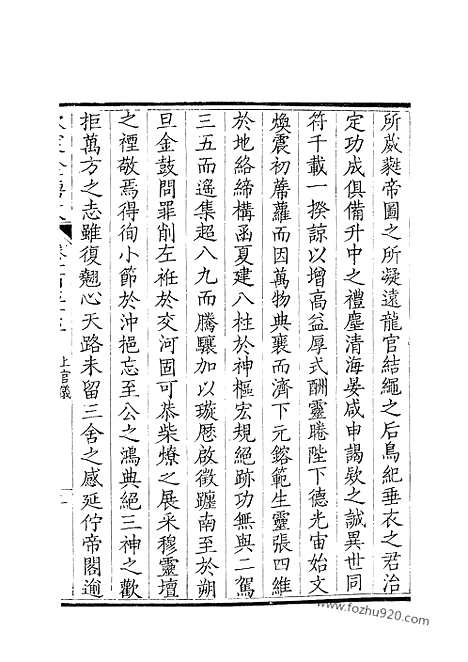 所葳蕤帝圖之所凝遠龍官結繩之后鳥紀垂衣之君治
定功成俱備升中之禮塵清海晏咸申謁欵之誠異世同
符千載一揆諒以增高益厚式酬靈睠陛下德光宙始文
煥震初蓆蘿而因萬物典襄而濟下元鎔範生靈張四維
於地絡締構函夏建八柱於神樞宏規絕跡功無與二駕
三五而遙集超八九而騰驤加以璇厯啟徵躔南至於朔
旦金鼓問罪削左袵於交河固可恭柴燎之展采穆靈壇
之禋敬焉得徇小節於沖挹忘至公之鴻典絕三神之歡
拒萬方之志雖復翹心天路未留三舍之感延佇帝閽逾
欽定全唐文
卷一百五十五
上官儀
www.fozhu920.com